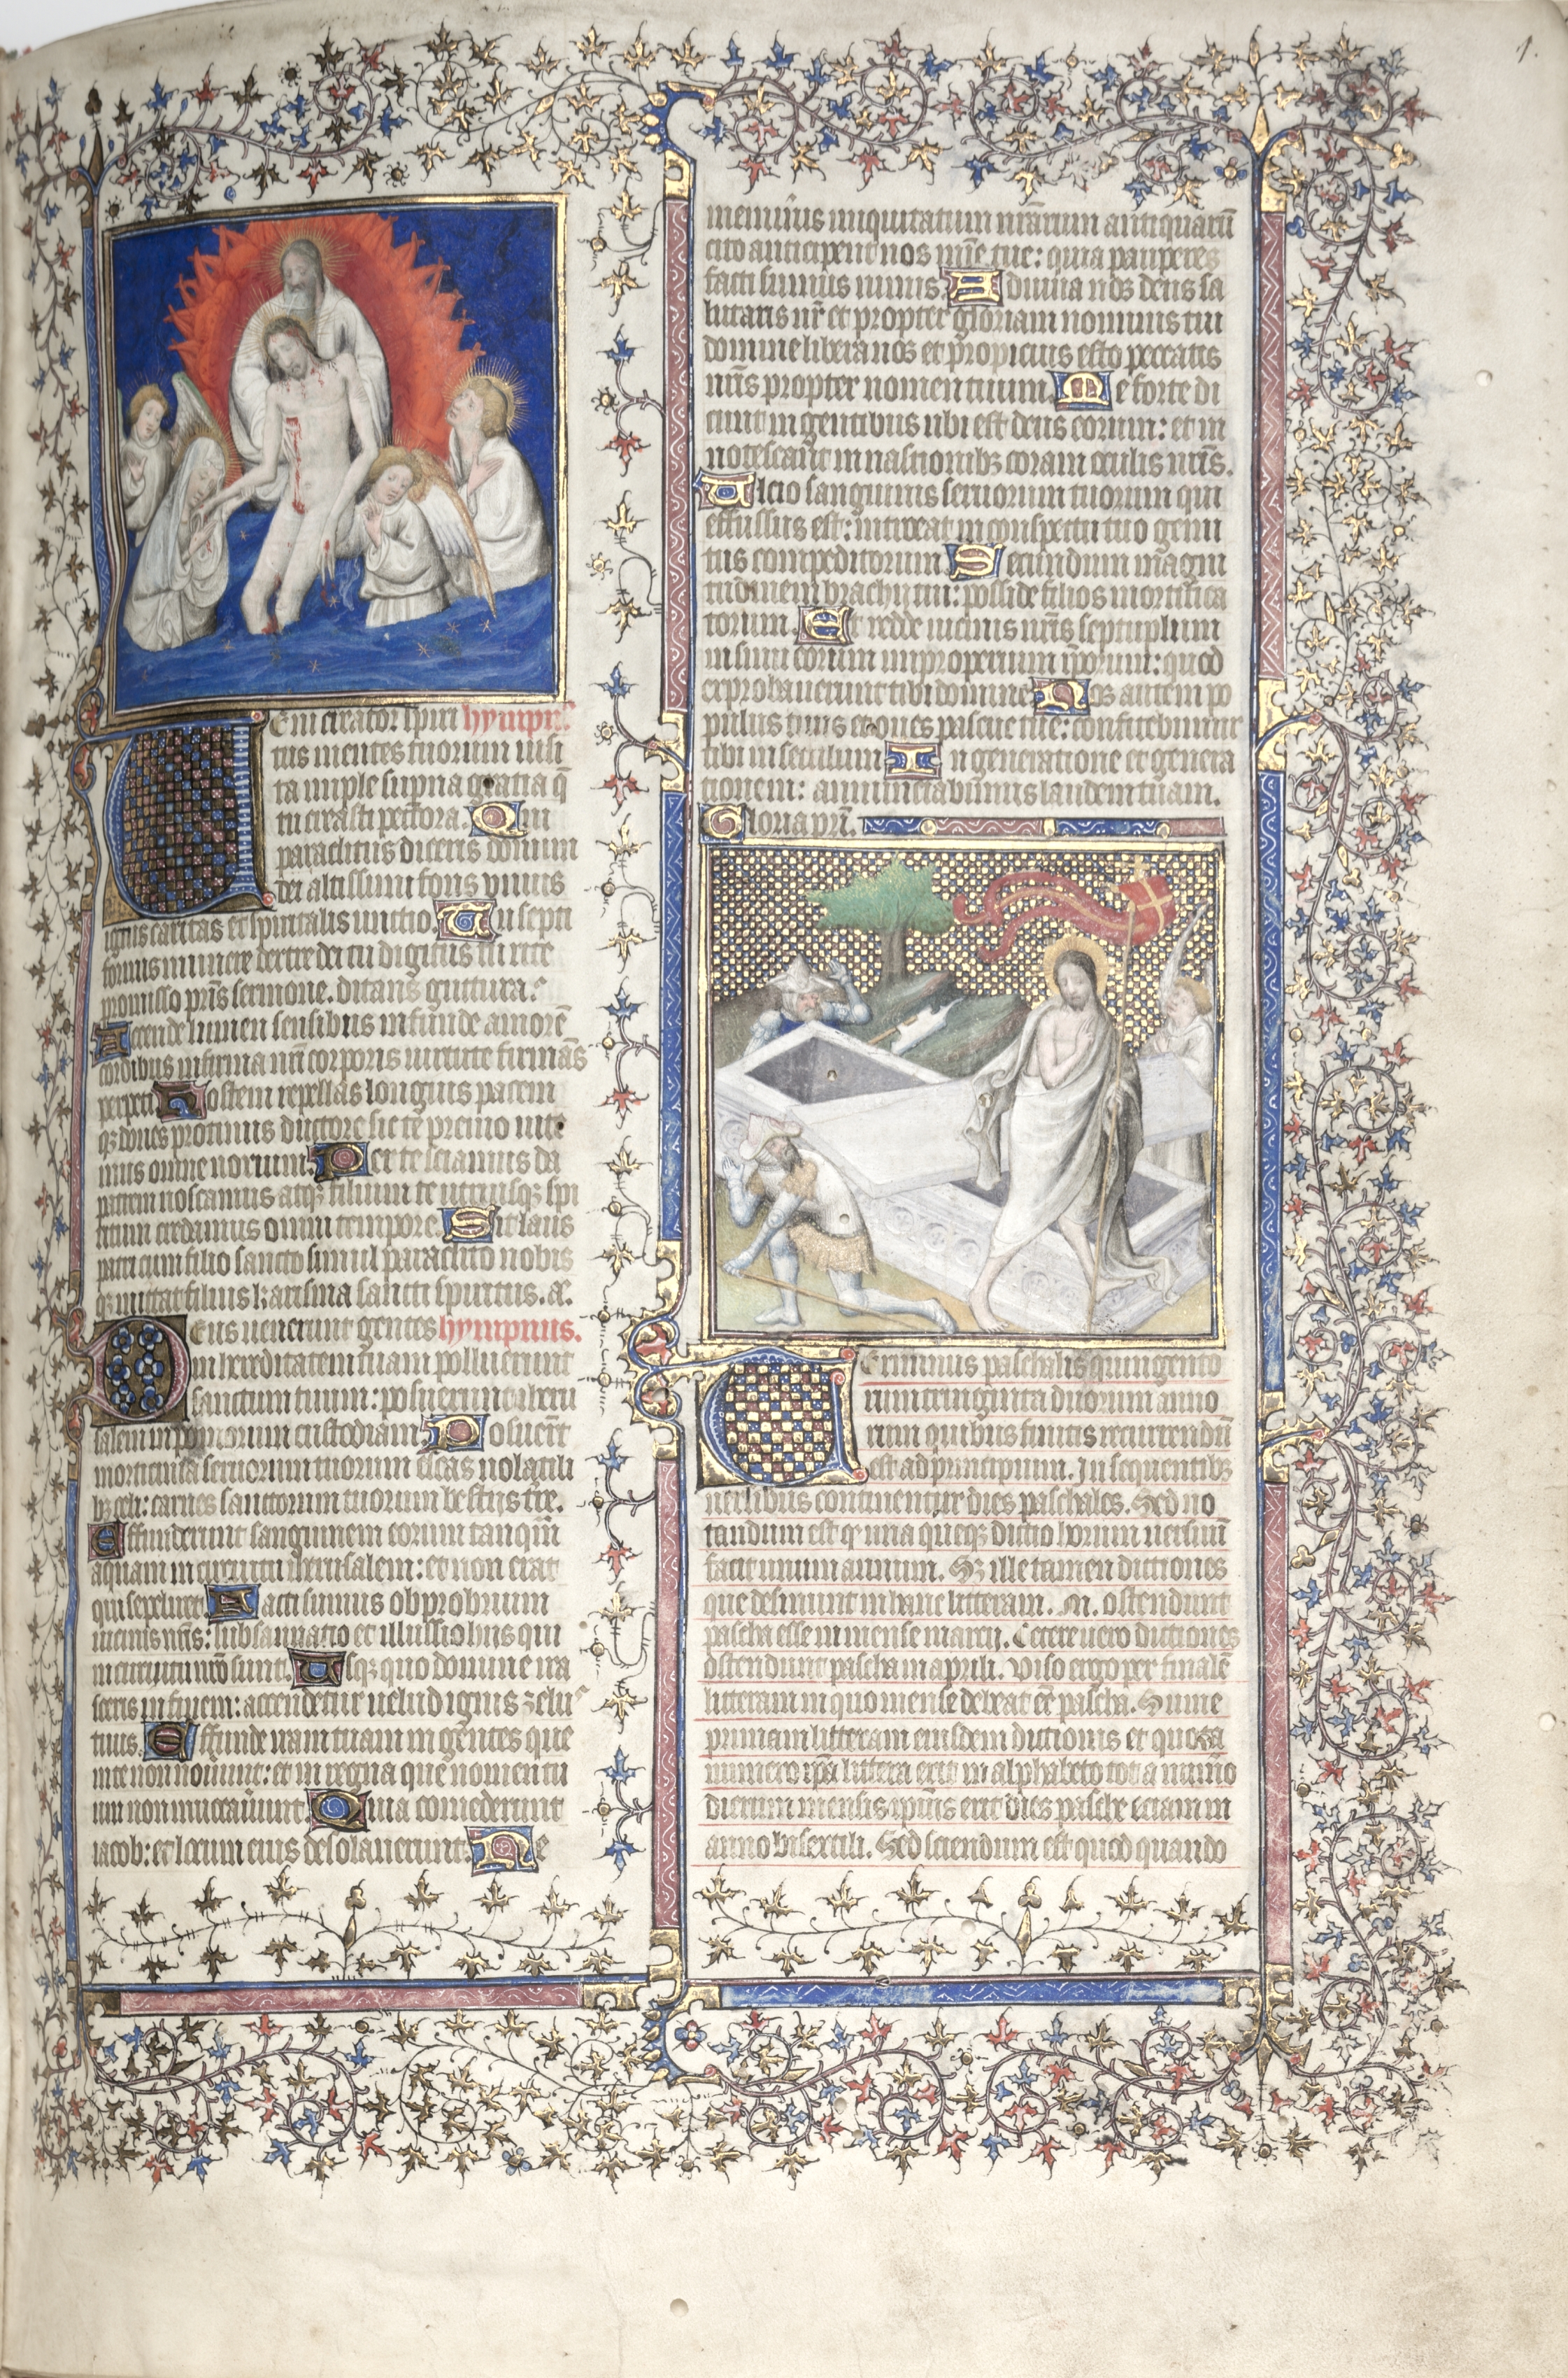 1.
Eni creator spiri hympn᷒
tus mentes tuorum uisi
ta imple sup̄na gratia q̄
tu creasti pectora. Qui
paraclitus diceris donum
dei altissimi fons viuus
ignis caritas et spiritalis unctio. Tu septi
formis munere dextre dei tu digitus tu rite
promisso pr̄is sermone. ditans guttura.
Accende lumen sensibus infunde amorē
cordibus infirma nr̄i corporis uirtute firmās
perpeti Hostem repellas longius pacem
qꝫ dones protinus ductore sic te preuio uite
mus omne noxium. Per te sciamus da
patrem noscamus atqꝫ filium te utriusqꝫ spi
ritum credamus omni tempore. Sit laus
patri cum filio sancto simul paraclito nobis
qꝫ mittat filius karisma sancti spiritus. a.
Deus uenerunt gentes hympnus.
in hereditatem tuam polluerunt
sanctum tuum: posuerunt iheru
salem in pomorum custodiam Posuer̄t
morticina seruorum tuorum escas uolatili
bꝫ celi: carnes sanctorum tuorum bestijs tr̄e.
Effuderunt sanguinem eorum tanq̄m
aquam in circuitu iherusalem: et non erat
qui sepeliret. Facti sumus obprobrium
uicinis nr̄is: subsannatio et illussio hiis qui
in circuitu nr̄o sunt. Usqꝫ quo domine ira
sceris in finem: accendetur uelud ignis zelus
tuus. Effunde iram tuam in gentes que
inte non nouunt: et in regna que nomen tu
um non inuocauūut Quia comederunt
iacob: et locum eius desolauerunt. Ne
memineris iniquitatum nr̄arum antiquarū
cito anticipent nos mīe tue: quia pauperes
facti sumus nimis. Adiuua nos deus sa
lutaris nr̄ et propter gloriam nominis tui
domine libera nos et propicius esto peccatis
nr̄is propter nomen tuum. Ne forte di
cant in gentibus ubi est deus eorum: et in
notescant in nastionibꝫ coram oculis nr̄is.
Ulcio sanguinis seruorum tuorum qui
effussus est: introeat in conspectu tuo gemi
tus compeditorum Secundum magni
tudinem brachij tui: posside filios mortifica
torum. Et redde uicinis nr̄is septuplum
in sinu eorum improperium ip̄orum: quod
exprobauerunt tibi domine Nos autem po
pulus tuus et oues pascue tue: confitebimur
tibi in seculum In generatione et genera
tionem: annunciabimus laudem tuam.
Gloria pr̄i.
Terminus paschalis quingento
rum tringinta duorum anno
rum quibus finitis recurrendū
est ad principium. In sequentibꝫ
uersibus continentur dies paschales. Sed no
tandum est qꝫ una queqꝫ dictio horum uersuū
facit unum annum. Sꝫ ille tamen dictiones
que desinunt in hanc litteram. M. ostendunt
pascha esse in mense marcij. Cetere uero dictiones
ostendunt pascha in aprili. Viso ergo per finalē
litteram in quo mense debeat eē pascha. Sume
primam litteram eiusdem dictionis et quota
numero ip̄a littera erit in alphabeto tota nūmo
dierum mensis ip̄ius erit dies pasche eciam in
anno bisextili. Sed sciendum est quod quando